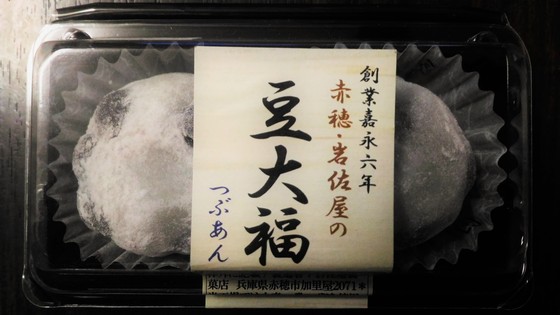 創業嘉永六年
赤穂・岩佐屋の
豆大福
つぶあん
菓店 兵庫県赤穂市加里屋2071*